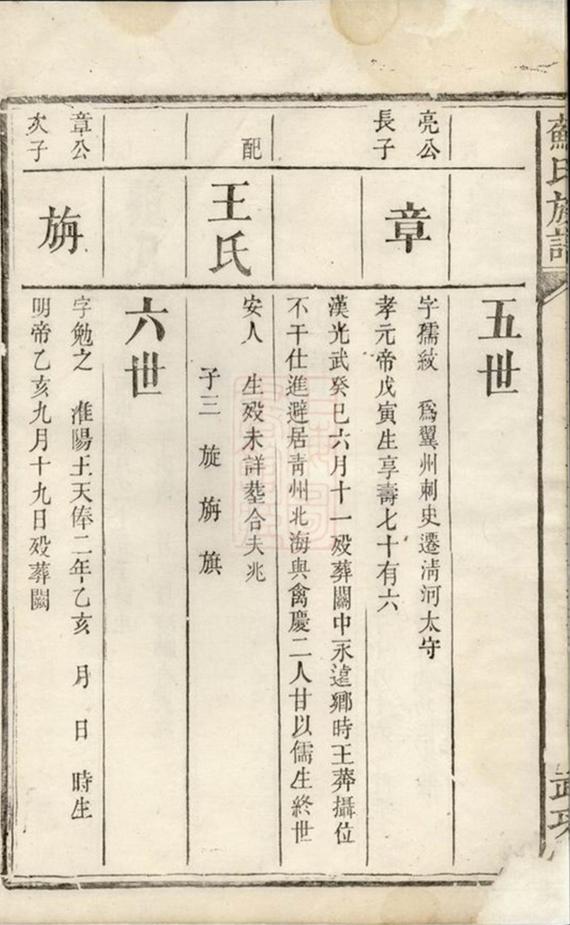 蘇氏族譜
五世
亮公
長子
章
字孺紋　為翼州刺史遷淸河太守
孝元帝戊寅生享壽七十有六
漢光武癸巳六月十一歿葬關中永違鄉時王莽攝位
不干仕進避居靑州北海與禽慶二人甘以儒生終世
配
王氏
安人　生歿未詳塟合夫兆
子三　旋旃旗
六世
章公
次子
旃
字勉之　淮陽王天俸二年乙亥　月　日　時生
明帝乙亥九月十九日歿葬闕
武功